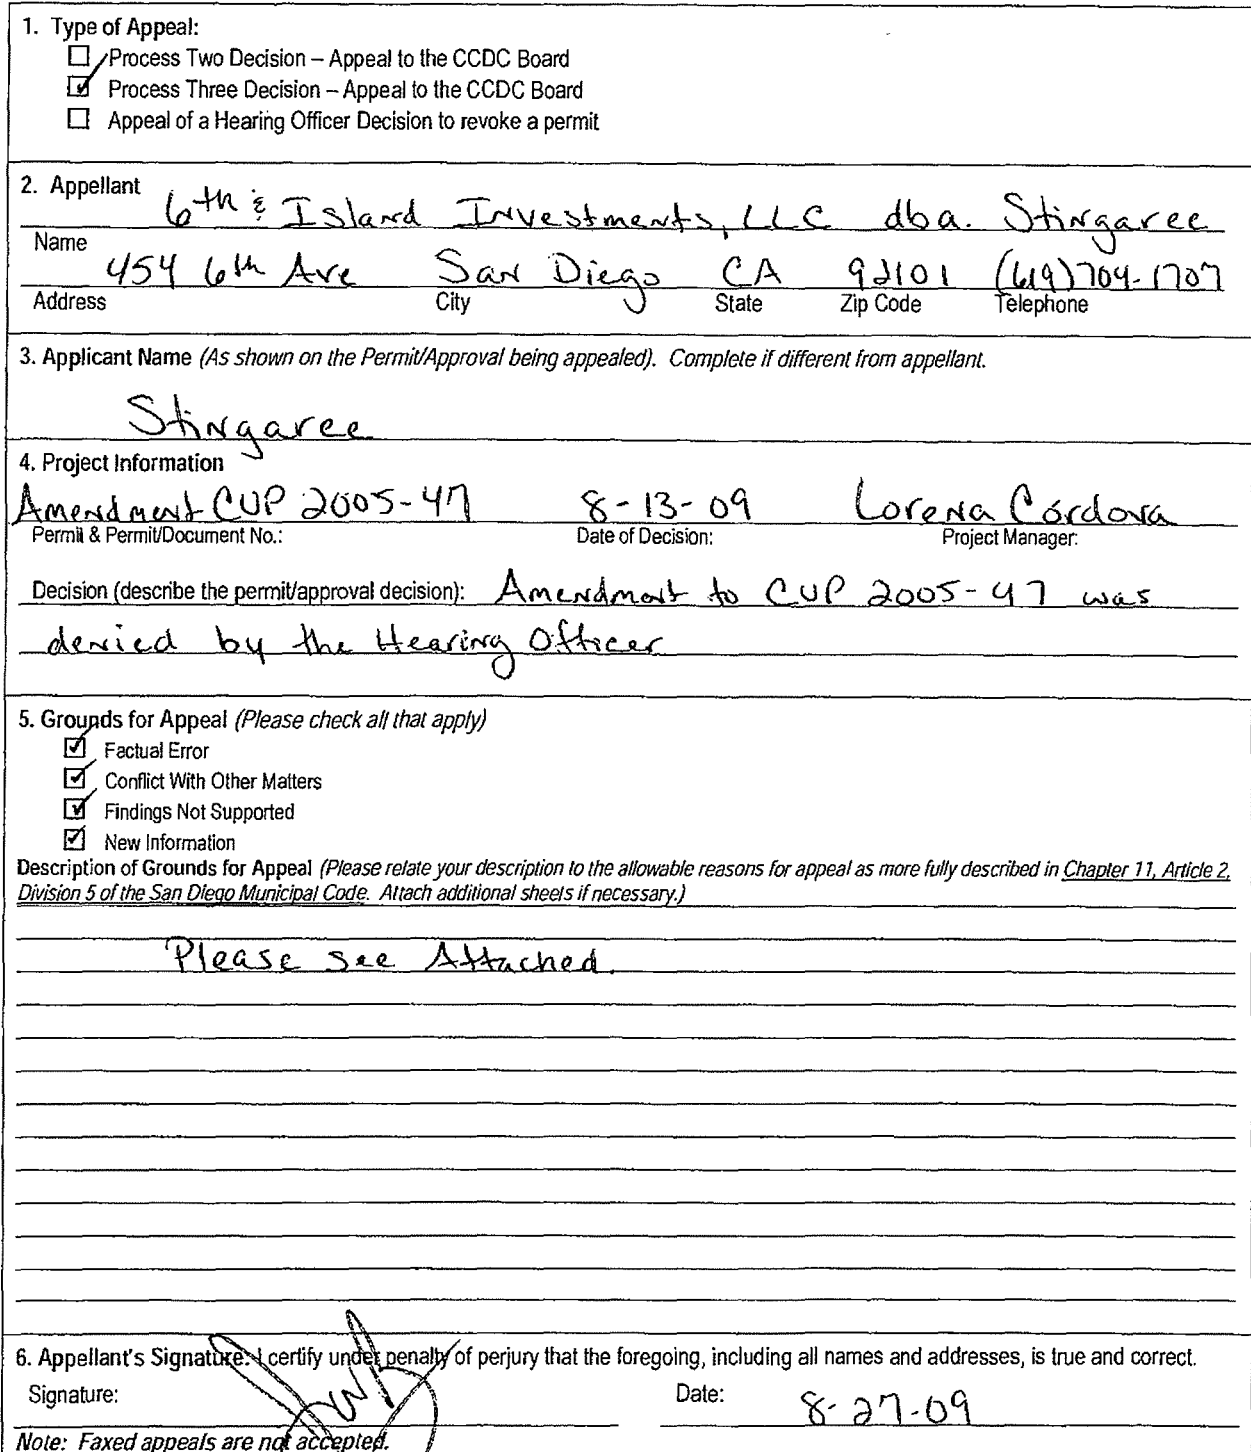 1. Type of Appeal:
☐ Process Two Decision – Appeal to the CCDC Board
☑ Process Three Decision – Appeal to the CCDC Board
☐ Appeal of a Hearing Officer Decision to revoke a permit
2. Appellant 6th & Island Investments, LLC dba. Stingaree
Name
454 6th Ave San Diego CA 92101 (619)704-1707
Address City State Zip Code Telephone
3. Applicant Name (As shown on the Permit/Approval being appealed). Complete if different from appellant.
Stingaree
4. Project Information
Amendment CUP 2005-47 8-13-09 Lorena Córdova
Permit & Permit/Document No.: Date of Decision: Project Manager:
Decision (describe the permit/approval decision): Amendment to CUP 2005-47 was
denied by the Hearing Officer
5. Grounds for Appeal (Please check all that apply)
☑ Factual Error
☑ Conflict With Other Matters
☑ Findings Not Supported
☑ New Information
Description of Grounds for Appeal (Please relate your description to the allowable reasons for appeal as more fully described in Chapter 11, Article 2,
Division 5 of the San Diego Municipal Code. Attach additional sheets if necessary.)
Please see Attached.
6. Appellant's Signature: I certify under penalty of perjury that the foregoing, including all names and addresses, is true and correct.
Signature: Date: 8-27-09
Note: Faxed appeals are not accepted.